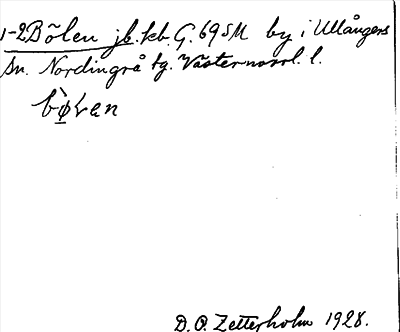 1-2 Bölen jb. kb. G. 69 SM by i Ullångers
sn. Nordingrå tg. Västernorrl. l.
bø̀ḷan
D. O. Zetterholm 1928.